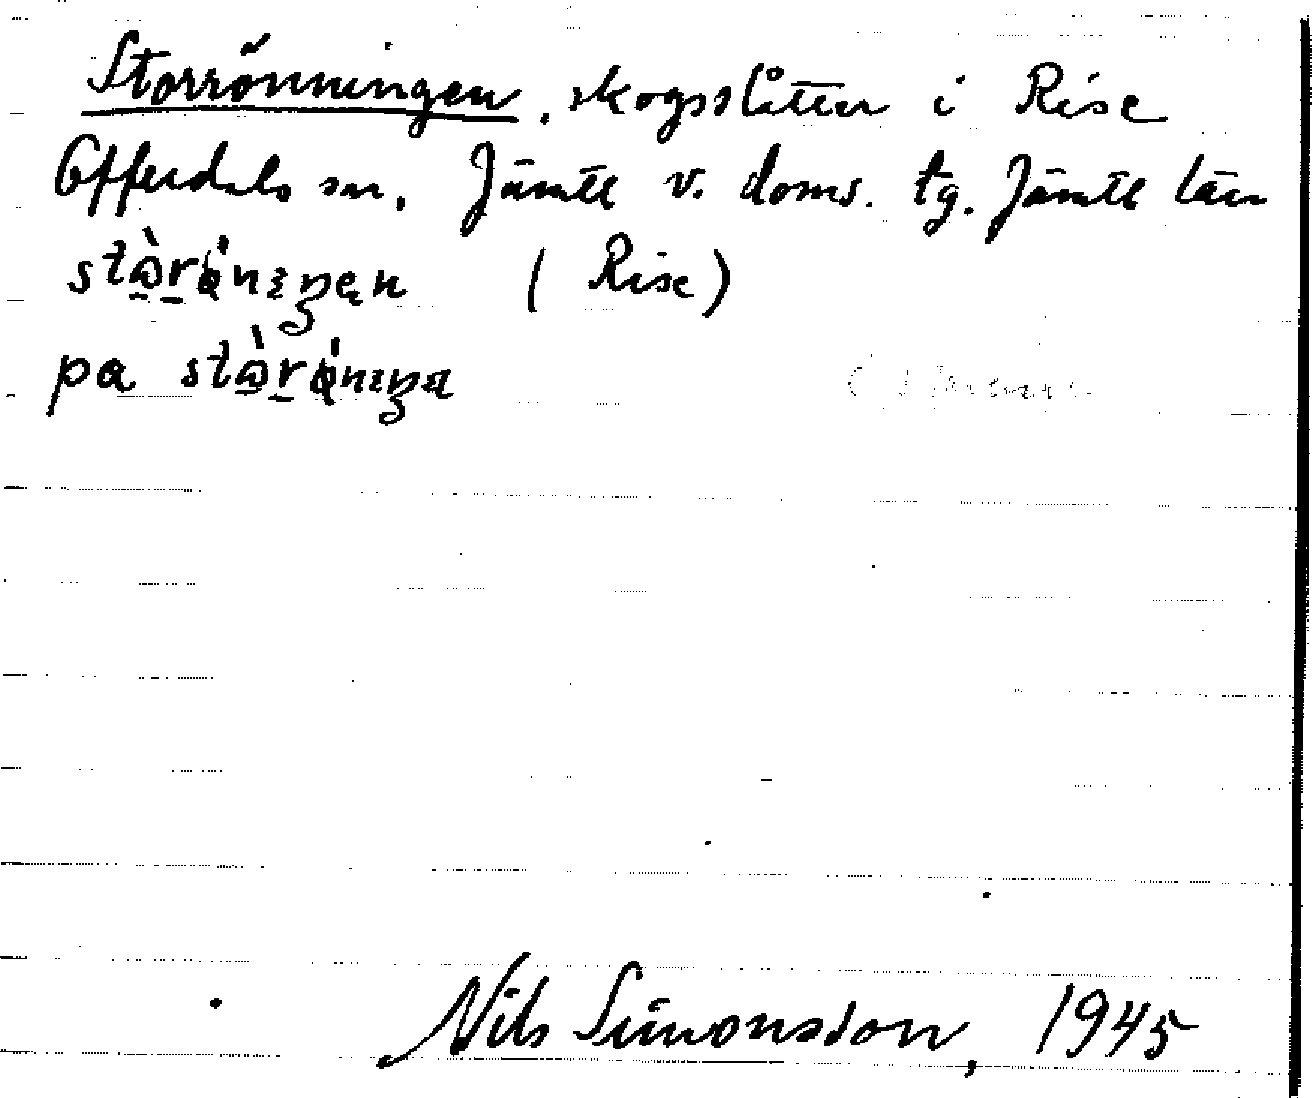 Storrönningen, skogsslåtter i Rise
Offerdals sn, Jämtl v. doms. tg. Jämtl län
(Rise)
på
Nils Simonsson, 1945